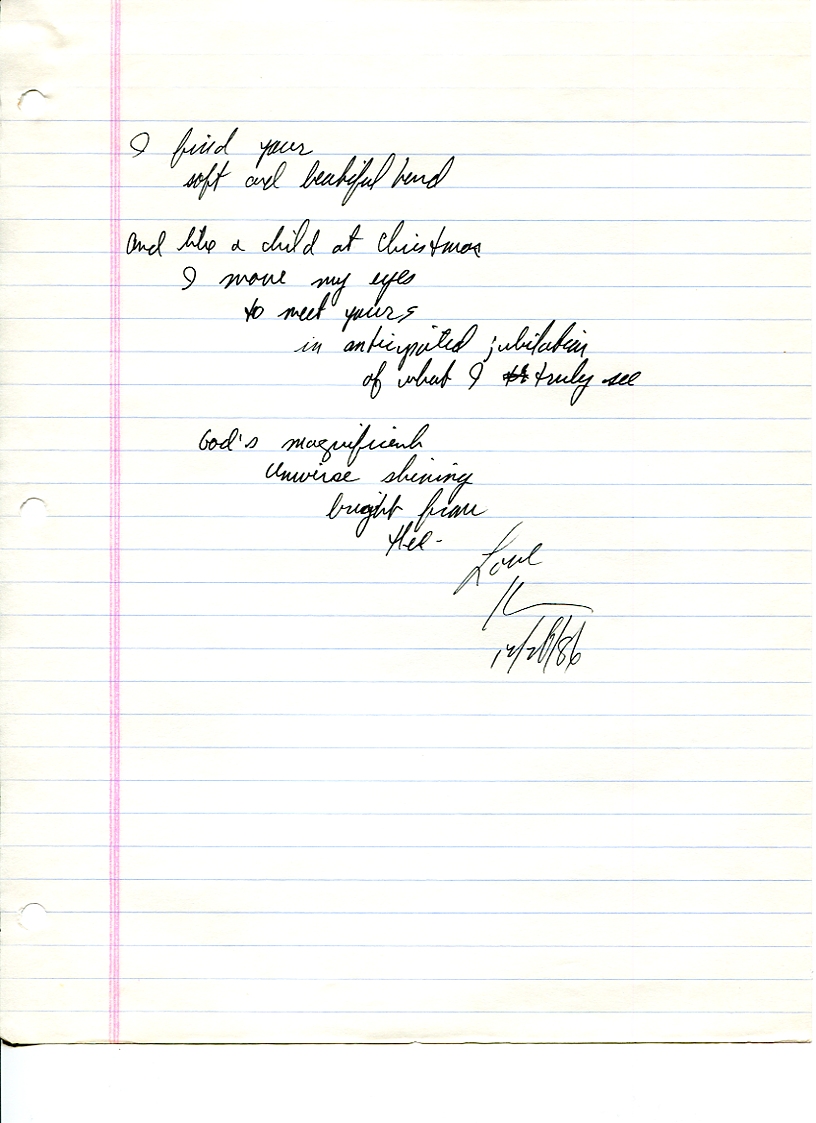 I find your
soft and beautiful hand
And like a child at Christmas
I move my eyes
to meet yours
in anticipated jubilation
of what I truly see
God's magnificent
Universe shining
bright from
thee.
Love
K